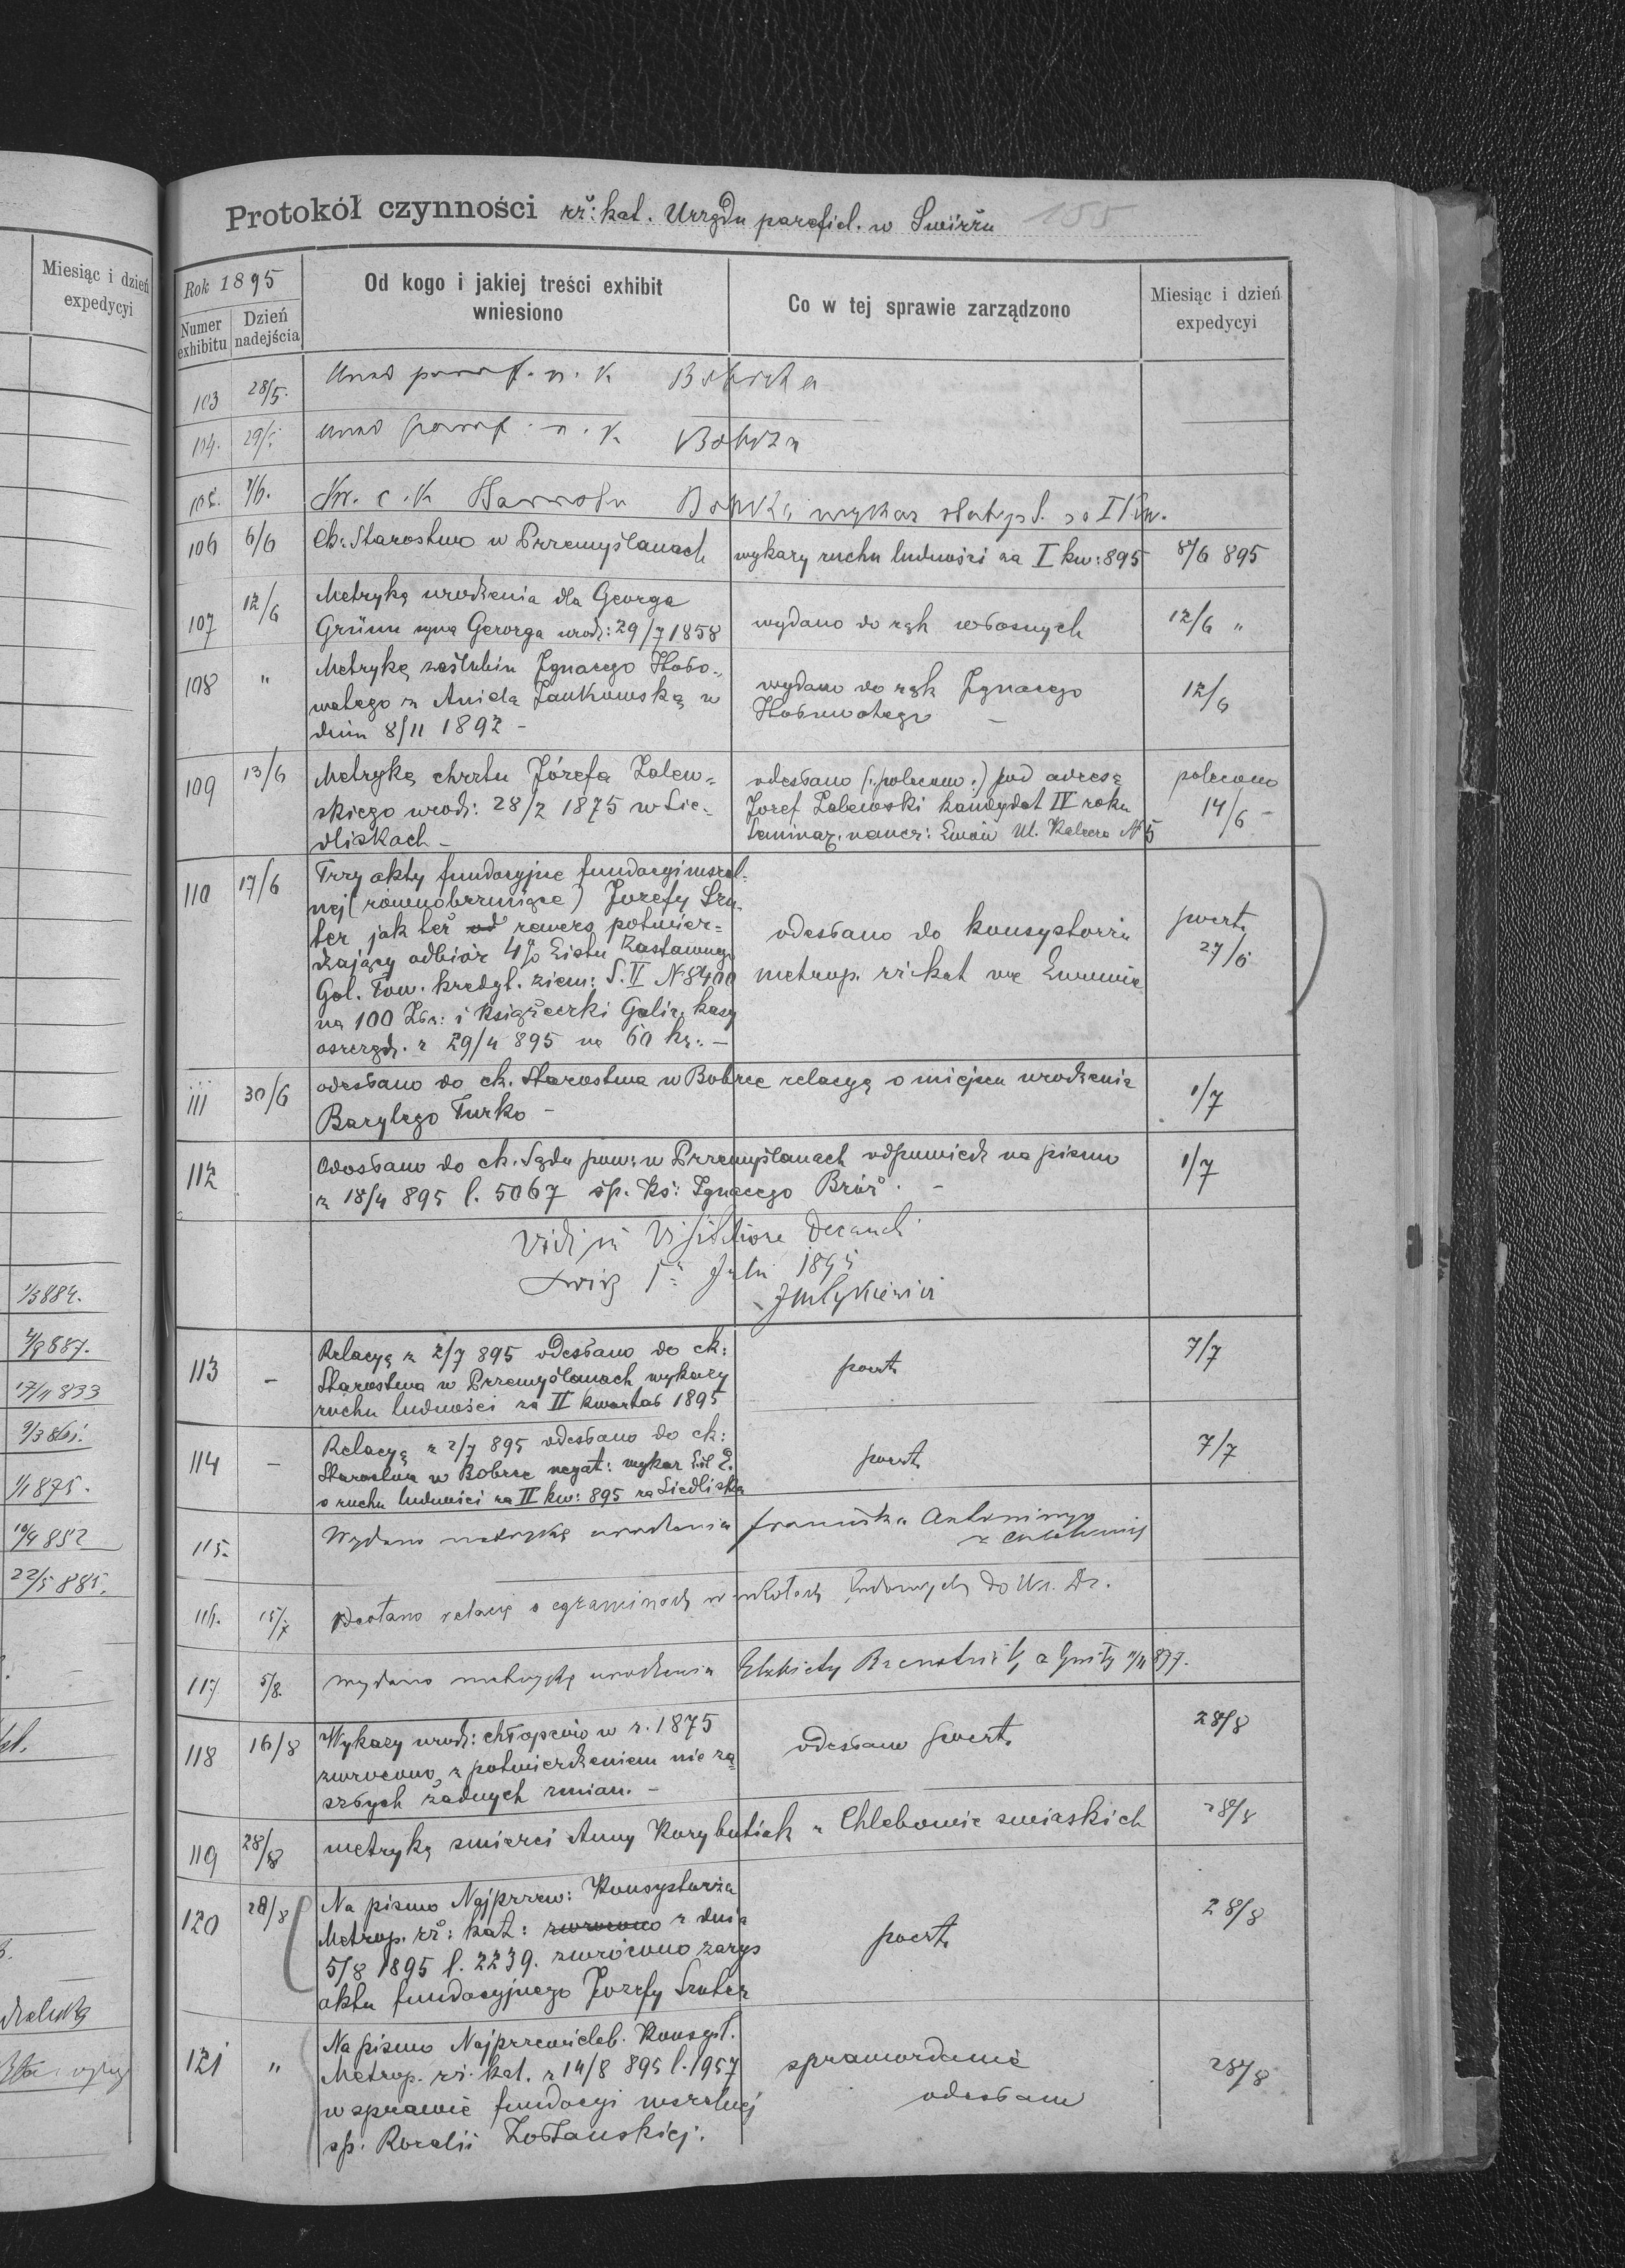 Miesiąc i dzień
expedycyi
1/3 884.
17/11 833
1/1 875.
10/4 852
22/5 885.
Protokół czynności rż: kat. Urzędu parafial. w Świrżu 155
Rok 1895
Numer exhibitu
Dzień nadejścia
Od kogo i jakiej treści exhibit wniesiono
Co w tej sprawie zarządzono
Miesiąc i dzień expedycyi
103 28/5. Urząd paraf. r. k. Bóbrka
104. 29/5 Urząd paraf. r. k. Bóbrka
105. 1/6. c. k. Bóbrka wykaz za I kw.
106 6/6 Ck: Starostwo w Przemyślanach wykazy ruchu ludności za I kw: 895 8/6 895
107 12/6 Metrykę urodzenia dla Georga
Grünn syna Georga urodz: 29/7 1858 wydano do rąk własnych 12/6 "
108 " Metrykę zaślubin Ignacego Hoło-
watego z Anielą Jankowską w wydano do rąk Ignacego 12/6
dniu 8/11 1892 – Hołowatego –
109 13/6 Metrykę chrztu Józefa Zalew- odesłano (:polecono:) pod adresą polecono
skiego urodz: 28/2 1875 w Sie- Jozef Zalewski kandydat IV roku 14/6 –
dliskach – Seminar. naucz: Lwów Ul. Kalecza № 5
110 17/6 Trzy akty fundacyjne fundacyi mszal-
nej (równobrzmiące) Jozefy Szu-
ter jak też od rewers potwier- odesłano do konsystorza poczt.
dzający odbiór 4% Listu Zastawnego 27/6
Gal. Tow. kredyt. ziem: S. II № 8400 metrop. rż kat we Lwowie
na 100 Złr: i książeczki Galic. kasy
oszczędz. z 29/4 895 na 60 kr. –
111 30/6 odesłano do ck. Starostwa w Bobrce relacyę o miejscu urodzenia 1/7
Bazylego Turko –
112 Odesłano do ck. Sądu pow: w Przemyślanach odpowiedź na pismo 1/7
z 18/4 895 l. 5067 śp. Ks: Ignacego Bróż. –
Vidi in Visitatione Decanali
Świrż 1 Juli 1895
113 – Relacyą z 2/7 895 odesłano do ck: poczt. 7/7
Starostwa w Przemyślanach wykazy
ruchu ludności za II kwartał 1895
114 – Relacyą z 2/7 895 odesłano do ck: poczt. 7/7
Starostwa w Bobrce negat: wykaz
o ruchu ludności za II kw: 895 za Siedliska
115. Wydano metrykę urodzenia Franciszka
116. 15/7 relacyę o egzaminach w szkołach ludowych do
117 5/8. wydano metrykę urodzenia Elżbiety
118 16/8 Wykazy urodz: chłopców w r. 1875 odesłano poczt. 28/8
zwrócono z potwierdzeniem nie za-
szłych żadnych zmian. –
119 28/8 metrykę śmierci Anny Korybutiak z Chlebowic świrskich 28/8
120 28/8 Na pismo Najprzew: Konsystorza 28/8
Metrop. rż: kat: zwrocono z dnia poczt.
5/8 1895 l. 2239. zwrócono zarys
aktu fundacyjnego Jozefy Szuter
121 " Na pismo Najprzewieleb. Konsyst.
Metrop. rż. kat. z 14/8 895 l. 1957 sprawozdanie 28/8
w sprawie fundacyi mszalnej odesłano
śp. Rozalii